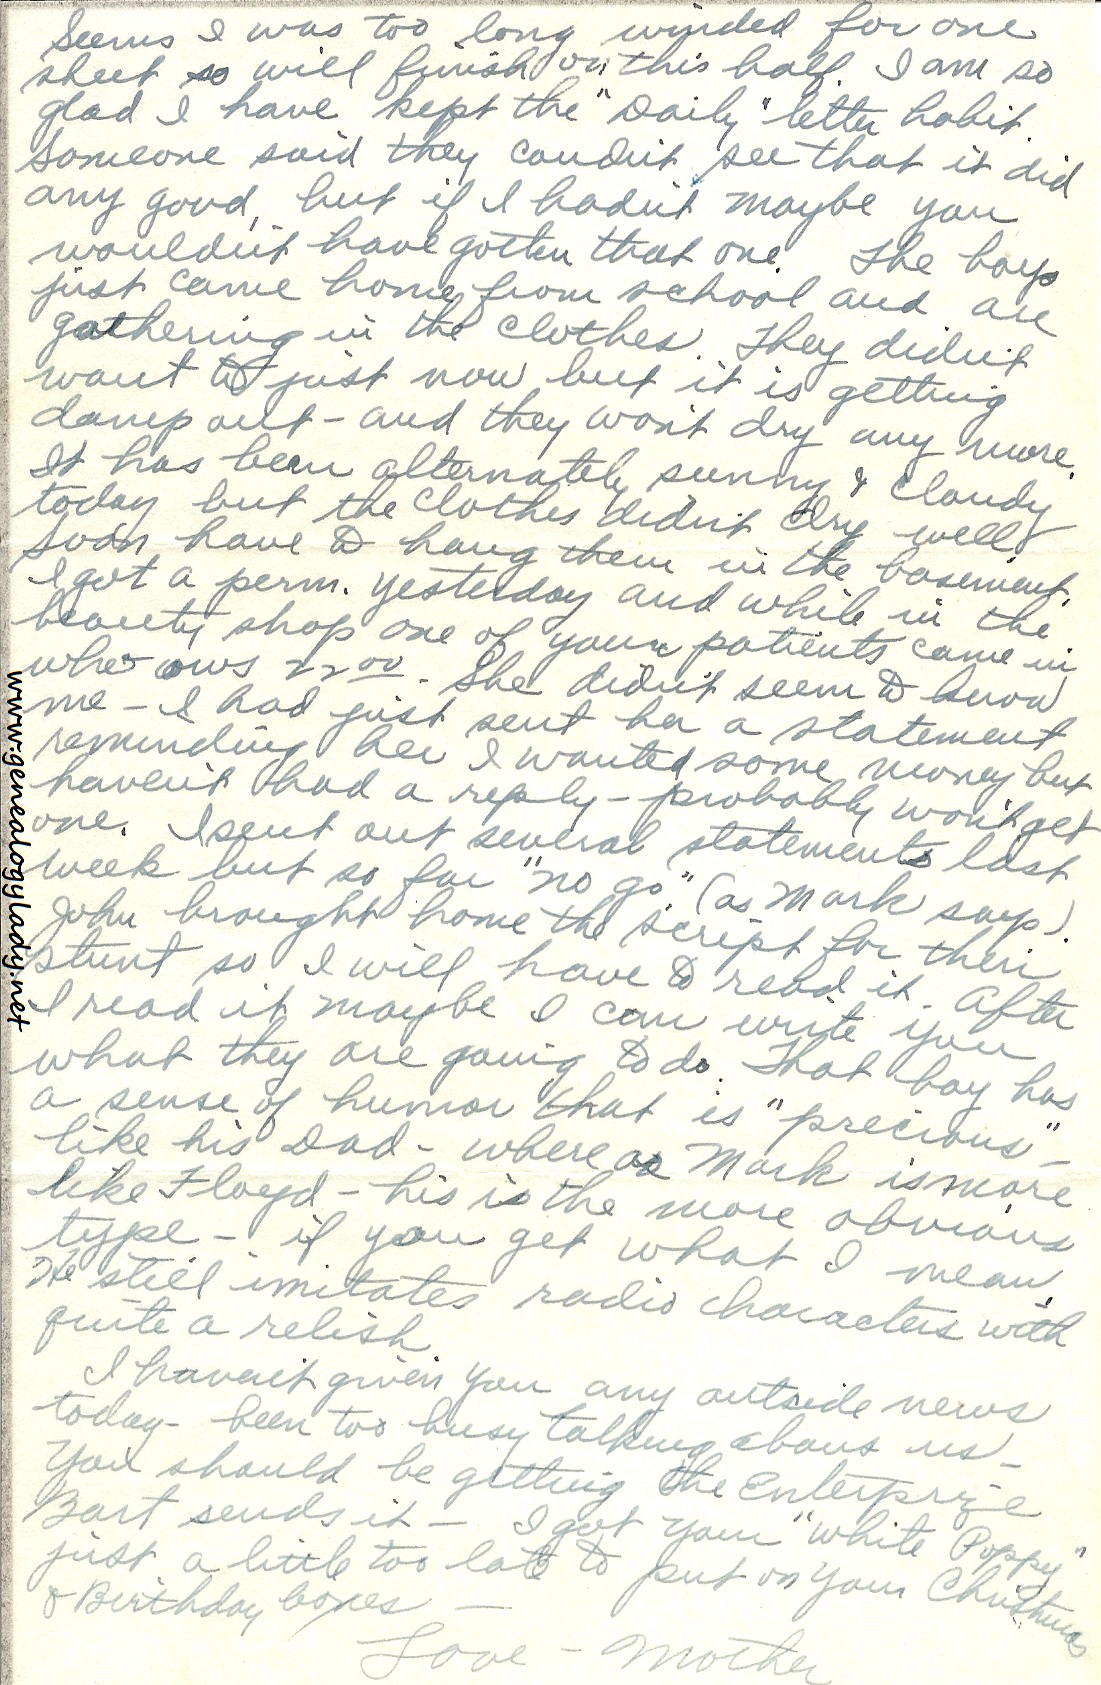 Seems I was too long winded for one
sheet so will finish on this half. I am so
glad I have kept the "Daily" letter habit.
Someone said they couldn't see that it did
any good, but if I hadn't maybe you
wouldn't have gotten that one. The boys
just came home from school and are
gathering in the clothes. They didn't
want to just now but it is getting
damp out - and they won't dry any more.
It has been alternately sunny & cloudy
today but the clothes didn't dry well
Soon have to hang them in the basement.
I got a perm. yesterday and while in the
beauty shop one of your patients came in
who ows 22 00. She didn't seem to know
me - I had just sent her a statement
reminding her I wanted some money but
haven't had a reply - probably won't get
one. I sent out several statements last
week but so far "no go" (as Mark says).
John brought home the script for their
stunt so I will have to read it. After
I read it maybe I can write you
what they are going to do. That boy has
a sense of humor that is "precious" -
like his Dad - where as Mark is more
like Floyd - his is the more obvious
type - if you get what I mean.
He still imitates radio characters with
quite a relish
I haven't given you any outside news
today - been too busy talking about us -
You should be getting the Enterprize
Bart sends it - I got your "White Poppy"
just a little too late to put on your Christmas
& Birthday boxes -
Love - Mother
www.genealogylady.net